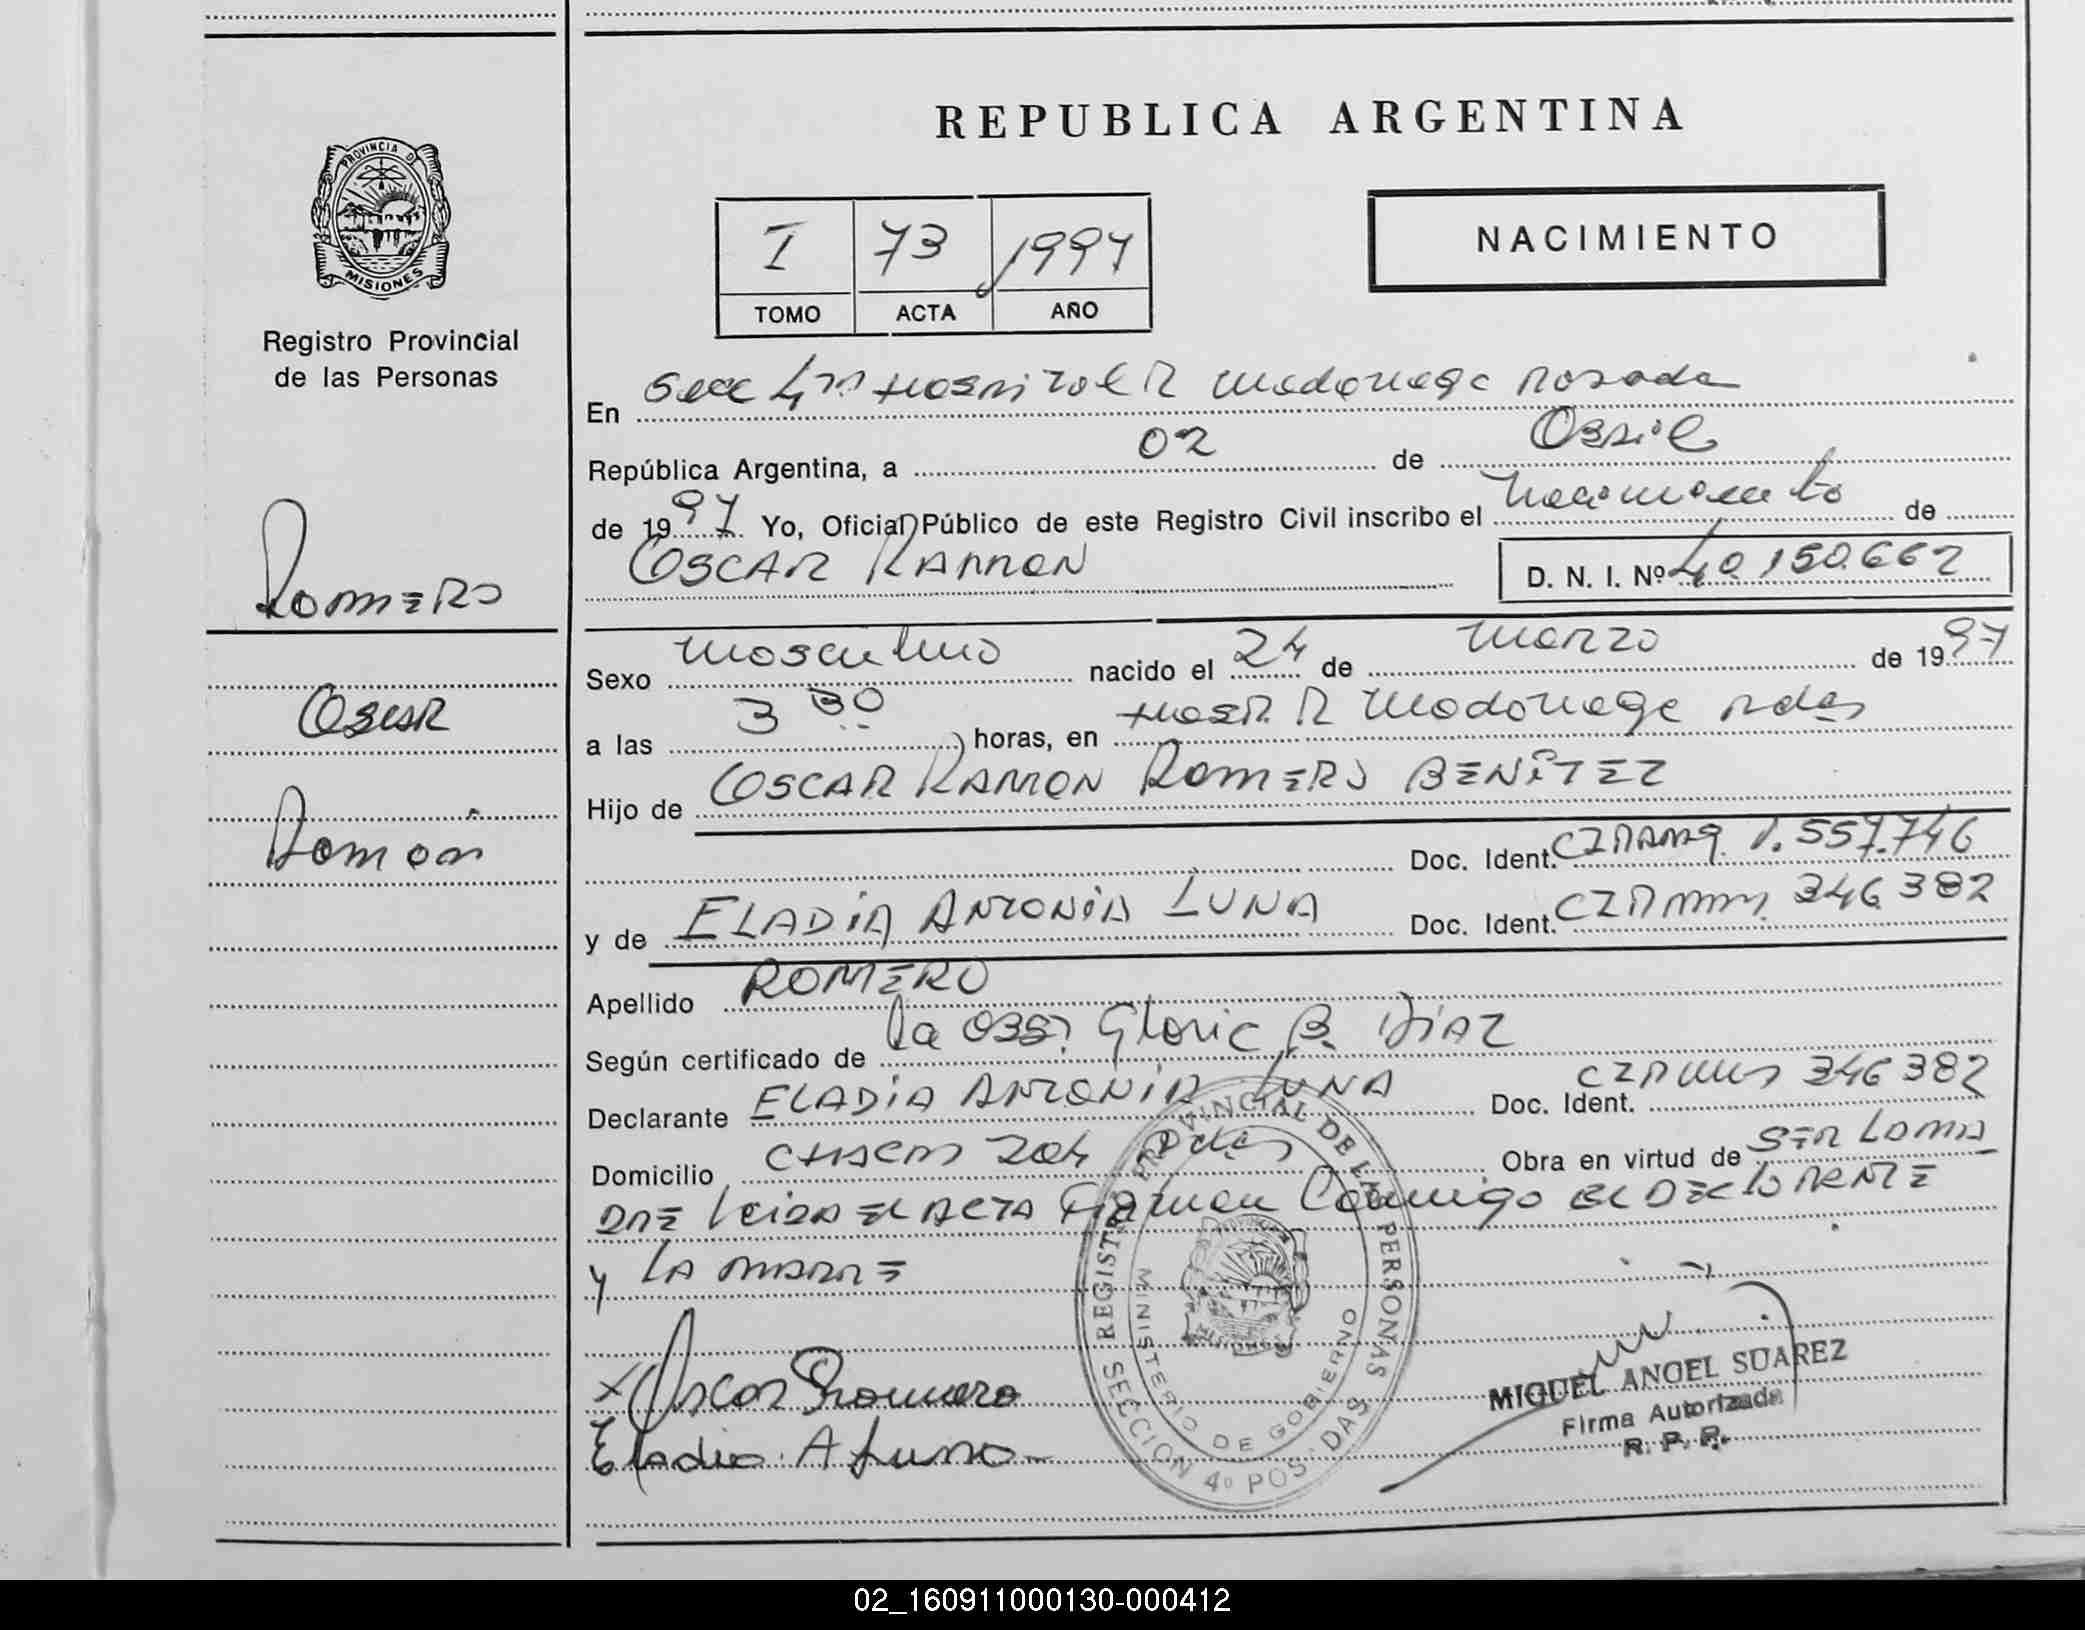 REPUBLICA ARGENTINA
PROVINCIA DE
MISIONES
Registro Provincial
de las Personas
I 73 1997
TOMO ACTA AÑO
NACIMIENTO
En Secc 4ta Hospital R Madariaga Posadas
República Argentina, a 02 de Abril
de 1997 Yo, Oficial Público de este Registro Civil inscribo el nacimiento de
OSCAR RAMON
D. N. I. Nº 40.150.662
Romero
Oscar
Ramón
Sexo masculino nacido el 24 de marzo de 1997
a las 3 30 horas, en Hosp. R Madariaga Pdas
Hijo de OSCAR RAMON ROMERO BENÍTEZ
Doc. Ident. 1.557.746
y de ELADIA ANTONIA LUNA Doc. Ident. 346382
Apellido ROMERO
Según certificado de la Obst Gloria B. DIAZ
Declarante ELADIA ANTONIA LUNA Doc. Ident. 346382
Domicilio CHACO 204 Pdas Obra en virtud de SER LA MA
DRE leida EL ACTA Firman Conmigo EL DECLARANTE
y LA MADRE
X Oscar Romero
Eladia A Luna
REGISTRO PROVINCIAL DE LAS PERSONAS
SECCION 4º POSADAS
MINISTERIO DE GOBIERNO
MIGUEL ANGEL SUAREZ
Firma Autorizada
R. P. P.
02_160911000130-000412